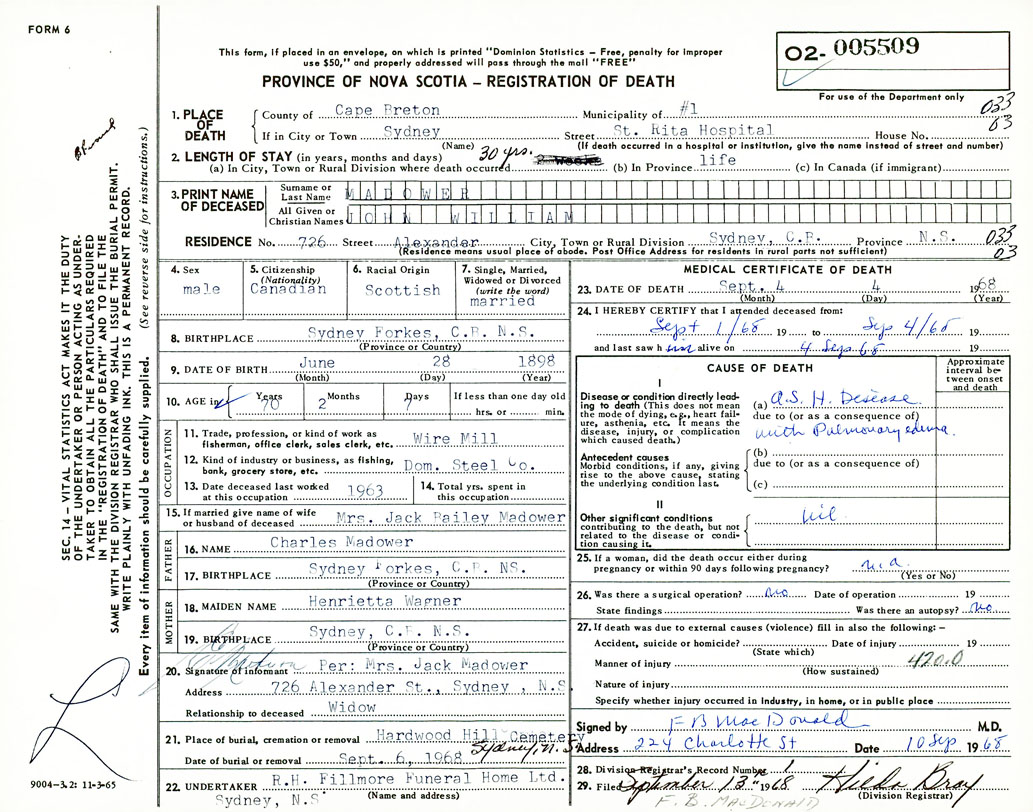 FORM 6
This form, if placed in an envelope, on which is printed "Dominion Statistics – Free, penalty for improper
use $50," and properly addressed will pass through the mail "FREE"
PROVINCE OF NOVA SCOTIA – REGISTRATION OF DEATH
O2- 005509
For use of the Department only
033
03
1. PLACE OF DEATH
County of Cape Breton Municipality of #1
If in City or Town Sydney Street St. Rita Hospital House No.
(Name) (If death occurred in a hospital or institution, give the name instead of street and number)
2. LENGTH OF STAY (in years, months and days) 30 yrs.
(a) In City, Town or Rural Division where death occurred 2 weeks (b) In Province life (c) In Canada (if immigrant)
3. PRINT NAME OF DECEASED
Surname or Last Name MADOWER
All Given or Christian Names JOHN WILLIAM
RESIDENCE No. 726 Street Alexander City, Town or Rural Division Sydney, C.B. Province N.S. 033
(Residence means usual place of abode. Post Office Address for residents in rural parts not sufficient) 03
4. Sex
male
5. Citizenship
(Nationality)
Canadian
6. Racial Origin
Scottish
7. Single, Married,
Widowed or Divorced
(write the word)
married
8. BIRTHPLACE Sydney Forkes, C.B. N.S.
(Province or Country)
9. DATE OF BIRTH June 28 1898
(Month) (Day) (Year)
10. AGE in Years Months Days If less than one day old
70 2 7 hrs. or min.
OCCUPATION
11. Trade, profession, or kind of work as
fisherman, office clerk, sales clerk, etc. Wire Mill
12. Kind of industry or business, as fishing,
bank, grocery store, etc. Dom. Steel Co.
13. Date deceased last worked
at this occupation 1963
14. Total yrs. spent in
this occupation
15. If married give name of wife
or husband of deceased Mrs. Jack Bailey Madower
FATHER
16. NAME Charles Madower
17. BIRTHPLACE Sydney Forkes, C.B. NS.
(Province or Country)
MOTHER
18. MAIDEN NAME Henrietta Wagner
19. BIRTHPLACE Sydney, C.B. N.S.
(Province or Country)
20. Signature of informant Per: Mrs. Jack Madower
Address 726 Alexander St., Sydney , N.S
Relationship to deceased Widow
21. Place of burial, cremation or removal Hardwood Hill Cemetery
Sydney, N.S.
Date of burial or removal Sept. 6, 1968
22. UNDERTAKER R.H. Fillmore Funeral Home Ltd.
Sydney, N.S (Name and address)
MEDICAL CERTIFICATE OF DEATH
23. DATE OF DEATH Sept. 4 4 1968
(Month) (Day) (Year)
24. I HEREBY CERTIFY that I attended deceased from:
Sept 1/68 19 to Sep 4/68 19
and last saw h im alive on 4 Sep 68 19
CAUSE OF DEATH
Approximate interval between onset and death
I
Disease or condition directly leading to death (This does not mean the mode of dying, e.g., heart failure, asthenia, etc. It means the disease, injury, or complication which caused death.)
(a) A.S.H. Disease
due to (or as a consequence of)
with Pulmonary edema.
Antecedent causes
Morbid conditions, if any, giving rise to the above cause, stating the underlying condition last.
(b)
due to (or as a consequence of)
(c)
II
Other significant conditions
contributing to the death, but not related to the disease or condition causing it.
nil
25. If a woman, did the death occur either during
pregnancy or within 90 days following pregnancy? n.a.
(Yes or No)
26. Was there a surgical operation? No Date of operation 19
State findings Was there an autopsy? No
27. If death was due to external causes (violence) fill in also the following: –
Accident, suicide or homicide? Date of injury 19
(State which)
Manner of injury 420.0
(How sustained)
Nature of injury
Specify whether injury occurred in Industry, in home, or in public place
Signed by F B MacDonald M.D.
Address 224 Charlotte St Date 10 Sep 1968
28. Division Registrar's Record Number 1
29. Filed September 13 1968 Hilda Bray
(Division Registrar)
F. B. MACDONALD
SEC. 14 – VITAL STATISTICS ACT MAKES IT THE DUTY
OF THE UNDERTAKER OR PERSON ACTING AS UNDER-
TAKER TO OBTAIN ALL THE PARTICULARS REQUIRED
IN THE "REGISTRATION OF DEATH" AND TO FILE THE
SAME WITH THE DIVISION REGISTRAR WHO SHALL ISSUE THE BURIAL PERMIT.
WRITE PLAINLY WITH UNFADING INK. THIS IS A PERMANENT RECORD.
Every item of information should be carefully supplied. (See reverse side for instructions.)
9004–3.2: 11-3-65